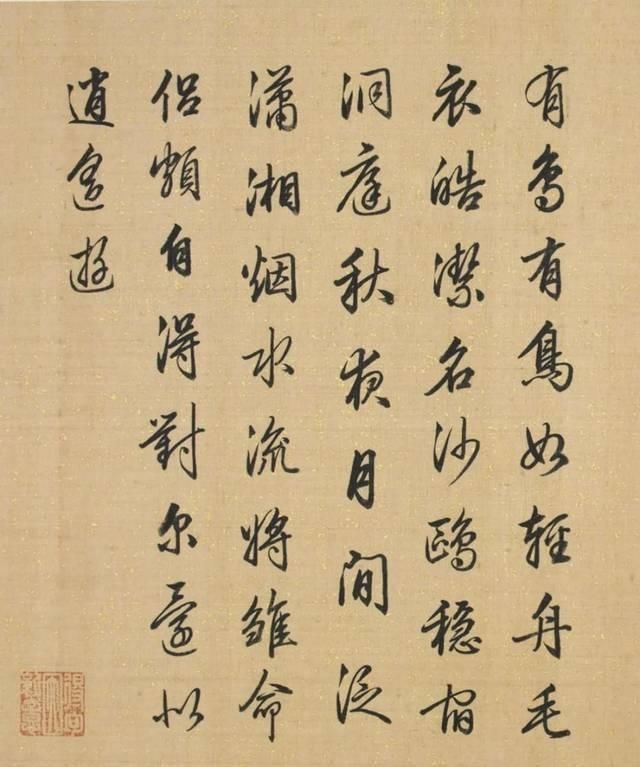 有鳥有鳥如輕舟毛
衣皓潔名沙鷗穩宿
洞庭秋夜月間泛
瀟湘烟水流將雛命
侶頗自得對尔還似
逍遙遊